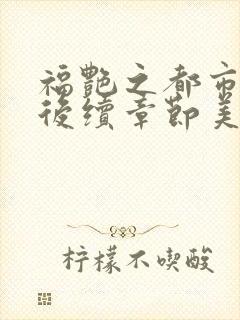 福艷之都市
後續章節美
柠檬不喫酸